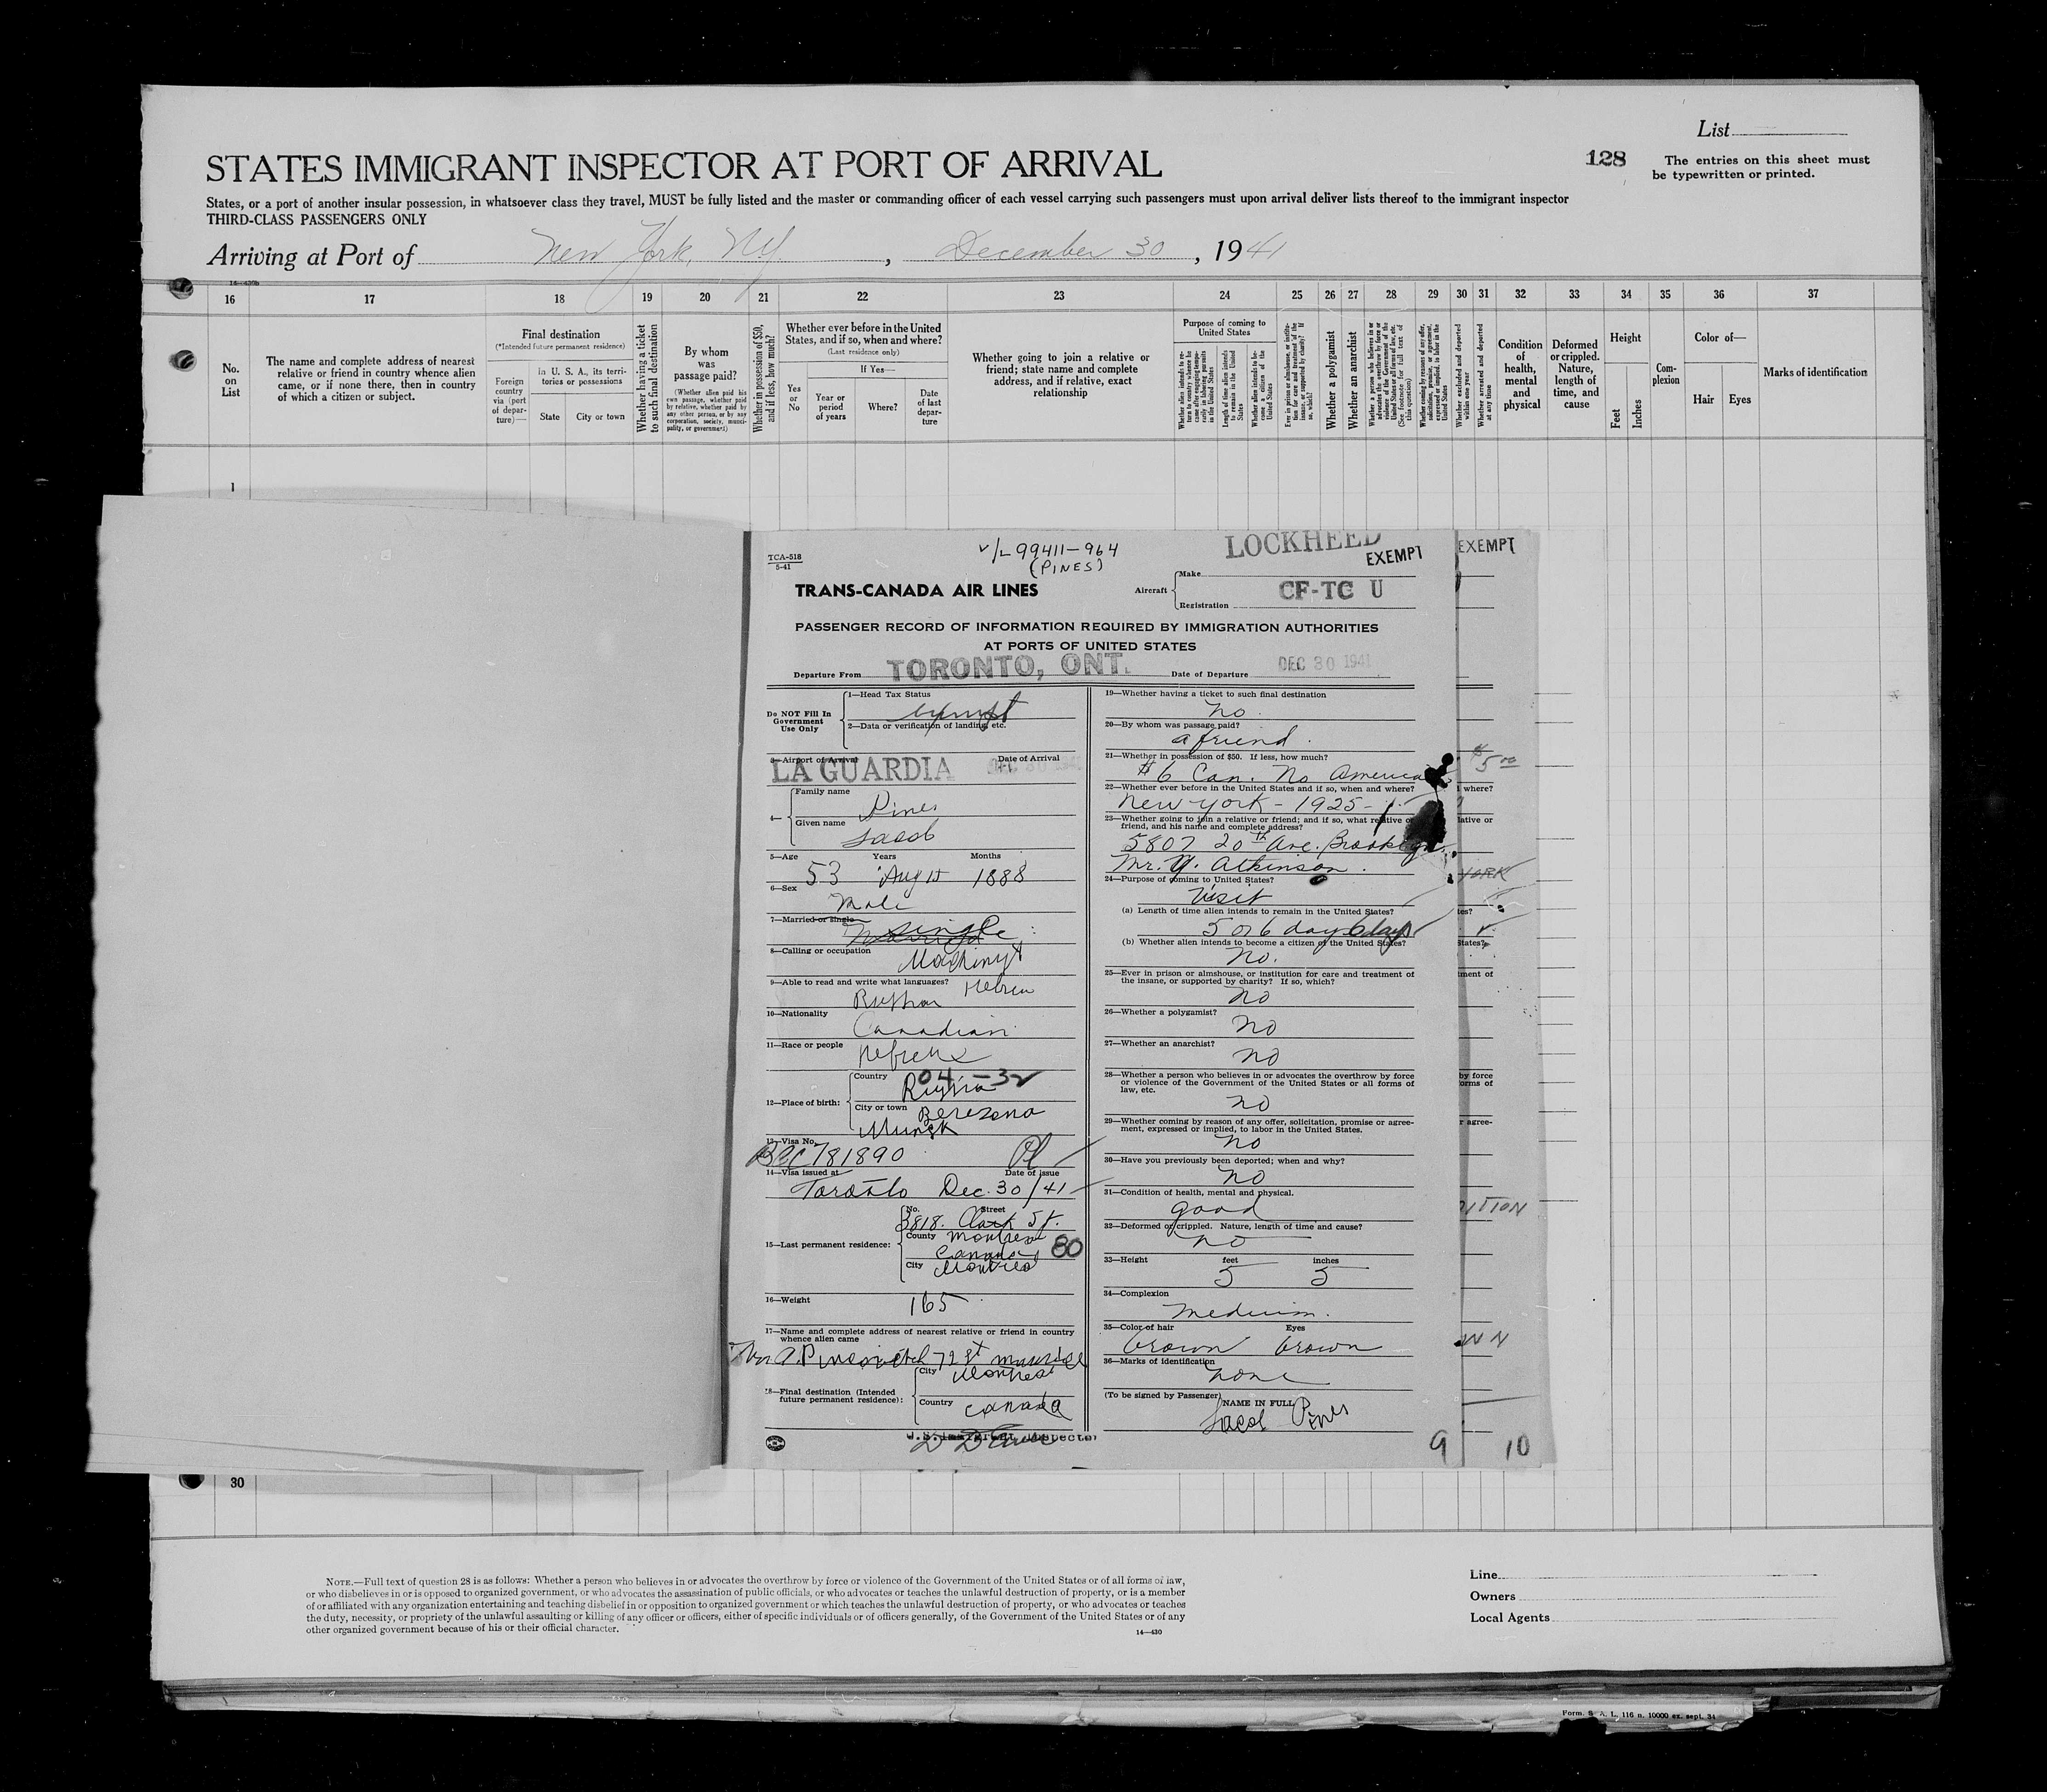 List
STATES IMMIGRANT INSPECTOR AT PORT OF ARRIVAL
128
The entries on this sheet must
be typewritten or printed.
States, or a port of another insular possession, in whatsoever class they travel, MUST be fully listed and the master or commanding officer of each vessel carrying such passengers must upon arrival deliver lists thereof to the immigrant inspector
THIRD-CLASS PASSENGERS ONLY
Arriving at Port of New York, NY. , December 30 , 1941
16 17 18 19 20 21 22 23 24 25 26 27 28 29 30 31 32 33 34 35 36 37
No. on List
The name and complete address of nearest relative or friend in country whence alien came, or if none there, then in country of which a citizen or subject.
Final destination
(*Intended future permanent residence)
Foreign country via (port of departure)—
In U. S. A., its territories or possessions
State
City or town
Whether having a ticket to such final destination
By whom was passage paid?
(Whether alien paid his own passage, whether paid by relative, whether paid by any other person, or by any corporation, society, municipality, or government)
Whether in possession of $50, and if less, how much?
Whether ever before in the United States, and if so, when and where?
(Last residence only)
Yes or No
If Yes—
Year or period of years
Where?
Date of last departure
Whether going to join a relative or friend; state name and complete address, and if relative, exact relationship
Purpose of coming to United States
Length of time alien intends to remain in the United States
Whether alien intends to become a citizen of the United States
Whether a polygamist
Whether an anarchist
Whether excluded and deported within one year
Whether arrested and deported at any time
Condition of health, mental and physical
Deformed or crippled. Nature, length of time, and cause
Height
Feet
Inches
Complexion
Color of—
Hair
Eyes
Marks of identification
1
TCA-518
5-41
V/L 99411-964
(PINES)
LOCKHEED
EXEMPT
EXEMPT
TRANS-CANADA AIR LINES
Aircraft
Make
Registration CF-TC U
PASSENGER RECORD OF INFORMATION REQUIRED BY IMMIGRATION AUTHORITIES
AT PORTS OF UNITED STATES
Departure From TORONTO, ONT.
Date of Departure DEC 30 1941
Do NOT Fill In
Government
Use Only
1—Head Tax Status
exempt
2—Data or verification of landing, etc.
3—Airport of Arrival Date of Arrival
LA GUARDIA DEC 30 1941
4— Family name Pines
Given name Jacob
5—Age Years Months
53 Aug 15 1888
6—Sex
Male
7—Married or single
Single
8—Calling or occupation
Machinyst
9—Able to read and write what languages?
Russian Hebrew
10—Nationality
Canadian
11—Race or people
Hebrew
04-32
12—Place of birth: Country Russia
City or town Berezeno
Minsk
13—Visa No.
BCC 781890
14—Visa issued at Date of issue
Toronto Dec. 30/41
15—Last permanent residence: No. Street
3818. Clark St.
County Montreal
Canada 80
City Montreal
16—Weight 165
17—Name and complete address of nearest relative or friend in country
whence alien came
18—Final destination (Intended
future permanent residence):
City Montreal
Country Canada
U.S. Immigrant Inspector
19—Whether having a ticket to such final destination
No.
20—By whom was passage paid?
a friend.
21—Whether in possession of $50. If less, how much?
$6 Can. No America
22—Whether ever before in the United States and if so, when and where?
New York - 1925 -
23—Whether going to join a relative or friend; and if so, what relative or
friend, and his name and complete address?
5807 20th Ave. Brooklyn
Mr. Y. Atkinson.
24—Purpose of coming to United States?
Visit
(a) Length of time alien intends to remain in the United States?
5 or 6 day 6 days
(b) Whether alien intends to become a citizen of the United States?
No.
25—Ever in prison or almshouse, or institution for care and treatment of
the insane, or supported by charity? If so, which?
No
26—Whether a polygamist?
No
27—Whether an anarchist?
No
28—Whether a person who believes in or advocates the overthrow by force
or violence of the Government of the United States or all forms of
law, etc.
No
29—Whether coming by reason of any offer, solicitation, promise or agree-
ment, expressed or implied, to labor in the United States.
No
30—Have you previously been deported; when and why?
No
31—Condition of health, mental and physical.
good
32—Deformed or crippled. Nature, length of time and cause?
No
33—Height feet inches
5 5
34—Complexion
Medium.
35—Color of hair Eyes
brown brown
36—Marks of identification
none
(To be signed by Passenger) NAME IN FULL
Jacob Pines
9
10
30
NOTE.—Full text of question 28 is as follows: Whether a person who believes in or advocates the overthrow by force or violence of the Government of the United States or of all forms of law,
or who disbelieves in or is opposed to organized government, or who advocates the assassination of public officials, or who advocates or teaches the unlawful destruction of property, or is a member
of or affiliated with any organization entertaining and teaching disbelief in or opposition to organized government or which teaches the unlawful destruction of property, or who advocates or teaches
the duty, necessity, or propriety of the unlawful assaulting or killing of any officer or officers, either of specific individuals or of officers generally, of the Government of the United States or of any
other organized government because of his or their official character.
14—430
Line
Owners
Local Agents